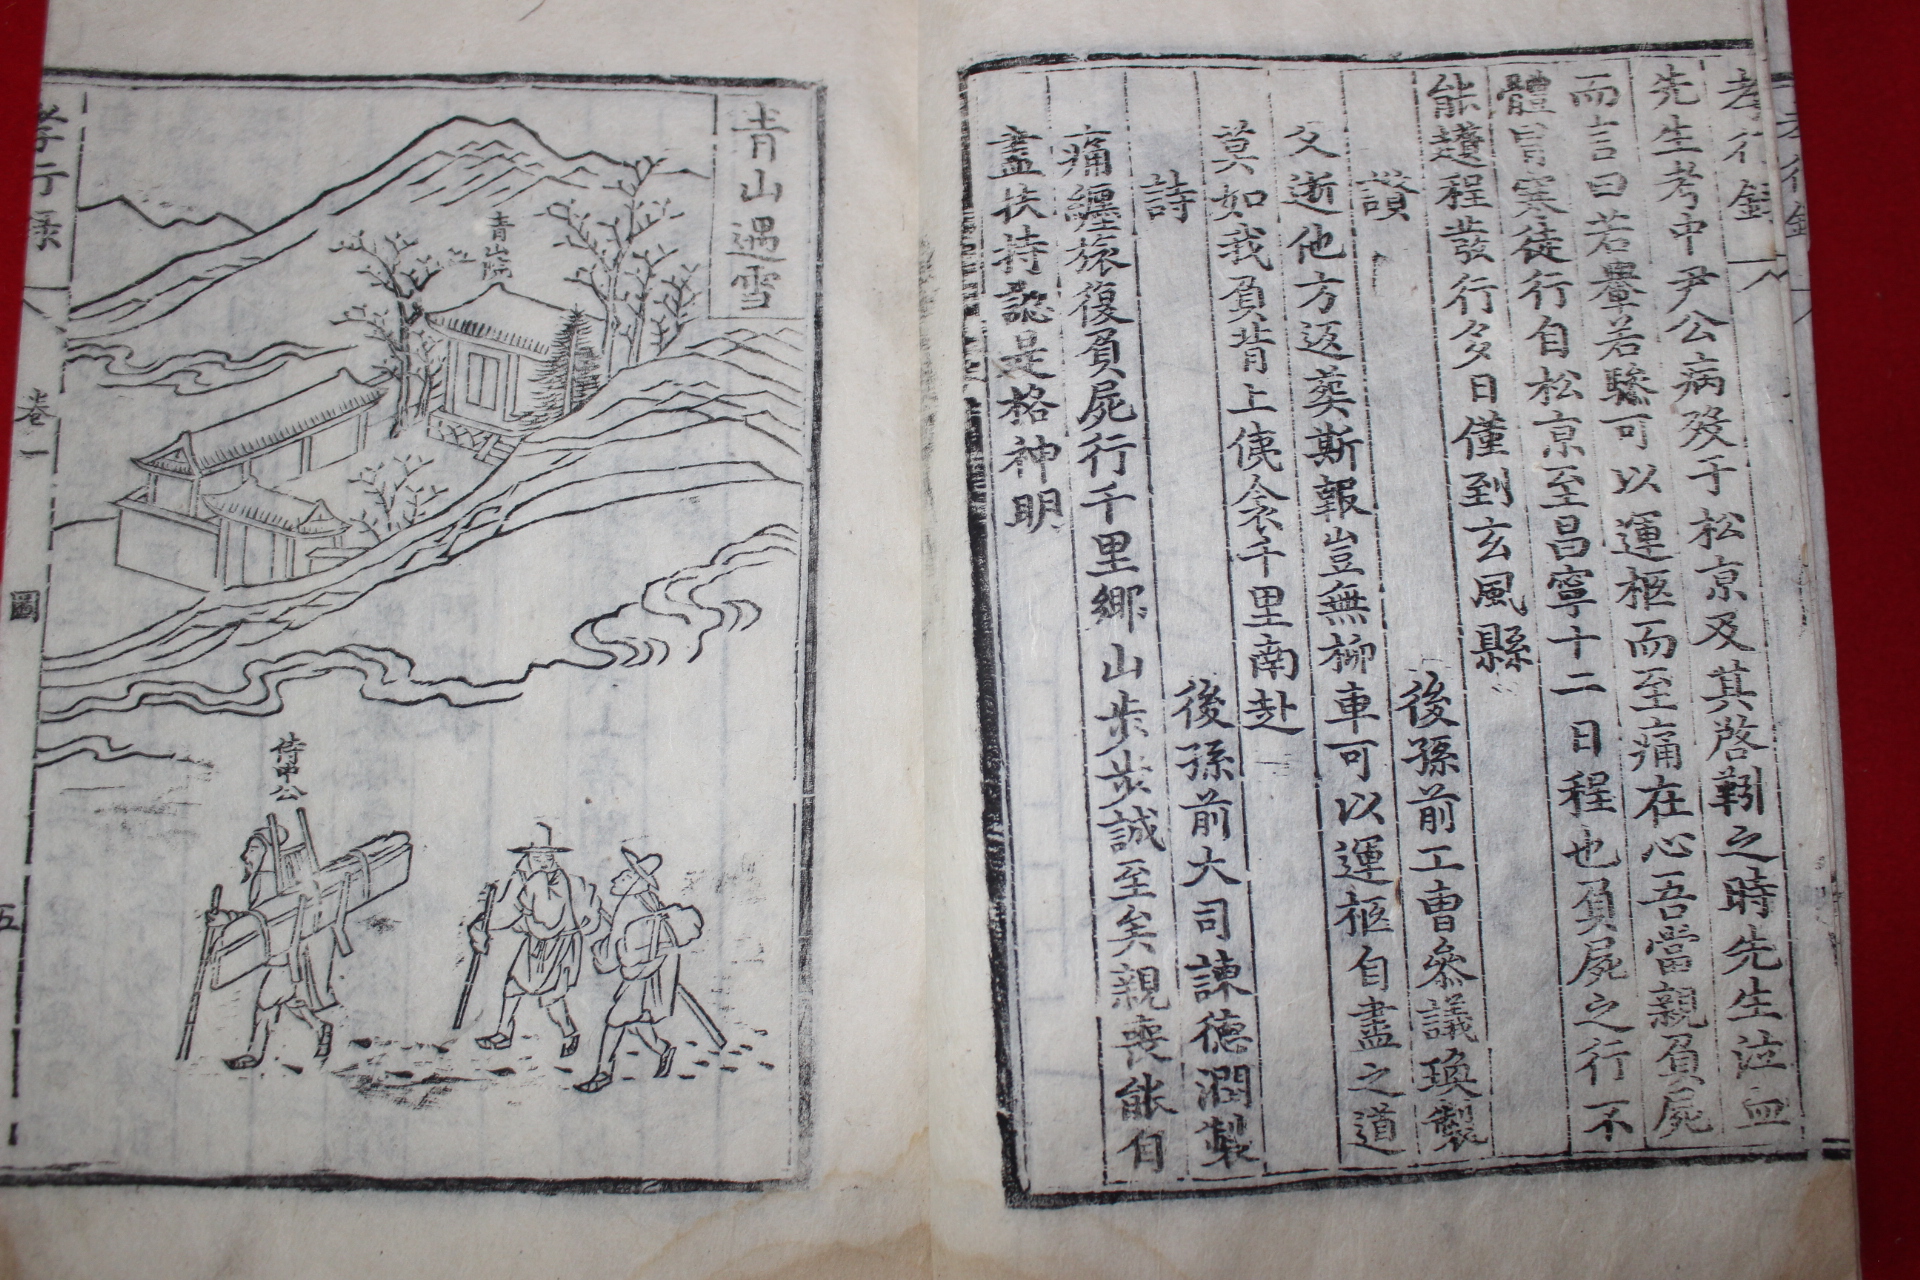 孝行錄
先生考中尹公病歿于松京及其啓靷之時先生泣血
而言曰若轝若驂可以運柩而至痛在心吾當親負屍
體冒寒徒行自松京至昌寧十二日程也負屍之行不
能趲程發行多日僅到玄風縣
讚 後孫前工曺參議瑍製
父逝他方返葬斯報豈無柳車可以運柩自盡之道
莫如我負背上俠衾千里南赴
詩 後孫前大司諫德潤製
痛纏旅復負屍行千里鄉山步步誠至矣親喪能自
盡扶持認是格神明
青山遇雪
青山院
侍中公
孝行錄
卷一
圖
五